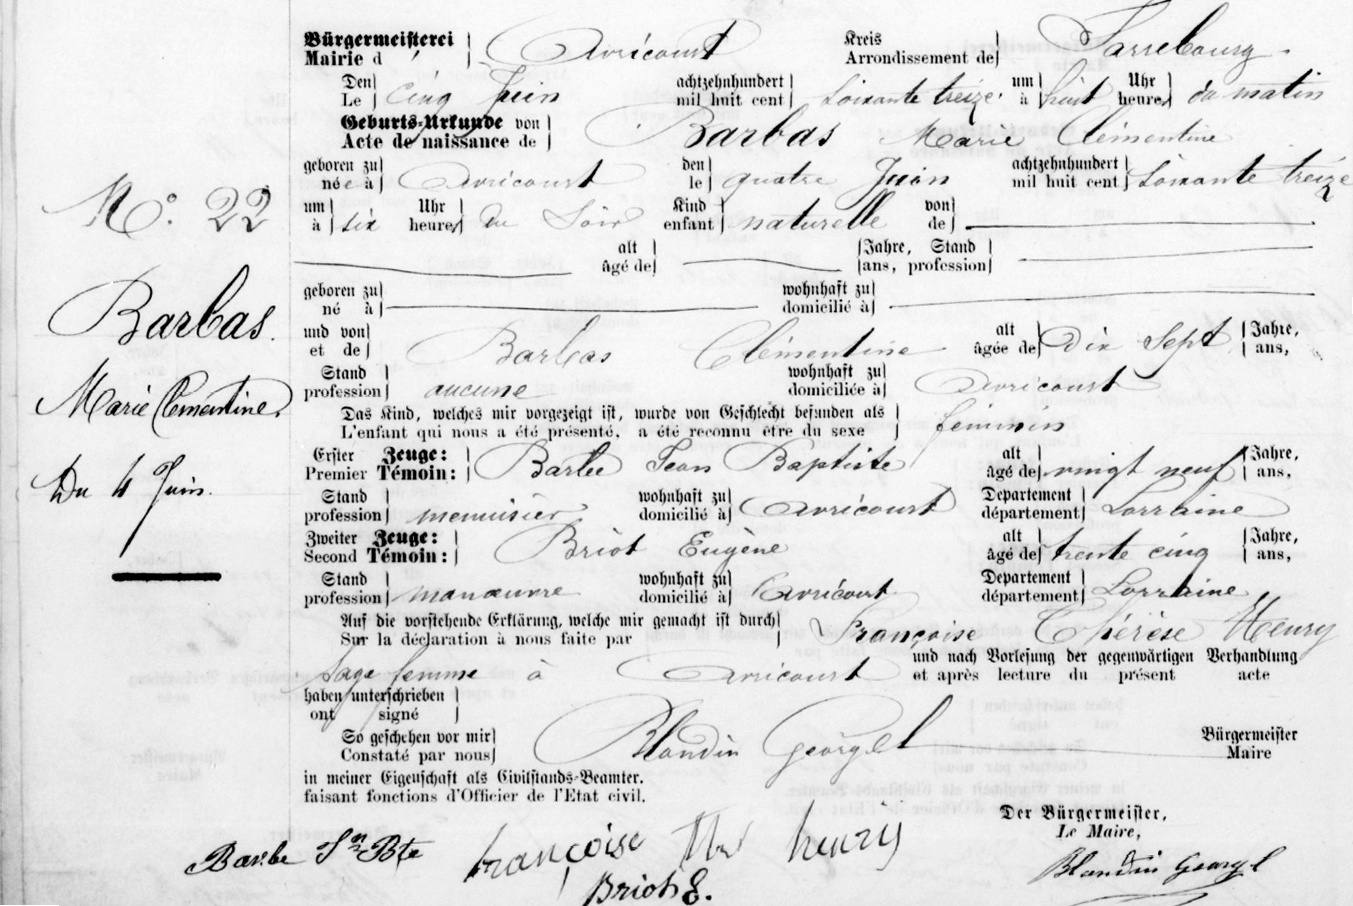 Bürgermeisterei
Mairie d' Avricourt Kreis
Arrondissement de Sarrebourg
Den
Le cinq Juin achtzehnhundert
mil huit cent soixante treize. um
à huit Uhr
heures du matin
Geburts-Urkunde von
Acte de naissance de Barbas Marie Clémentine
geboren zu
née à Avricourt den
le quatre Juin achtzehnhundert
mil huit cent soixante treize
um
à six Uhr
heures du Soir Kind
enfant naturelle von
de
alt
âgé de Jahre, Stand
ans, profession
geboren zu
né à wohnhaft zu
domicilié à
und von
et de Barbas Clémentine alt
âgée de dix Sept Jahre,
ans,
Stand
profession aucune wohnhaft zu
domiciliée à Avricourt
Das Kind, welches mir vorgezeigt ist, wurde von Geschlecht befunden als
L'enfant qui nous a été présenté, a été reconnu être du sexe féminin
Erster Zeuge:
Premier Témoin: Barbe Jean Baptiste alt
âgé de vingt neuf Jahre,
ans,
Stand
profession menuisier wohnhaft zu
domicilié à Avricourt Departement
département Lorraine
Zweiter Zeuge:
Second Témoin: Briot Eugène alt
âgé de trente cinq Jahre,
ans,
Stand
profession manœuvre wohnhaft zu
domicilié à Avricourt Departement
département Lorraine
Auf die vorstehende Erklärung, welche mir gemacht ist durch
Sur la déclaration à nous faite par Françoise Thérèse Henry
Sage femme à Avricourt und nach Vorlesung der gegenwärtigen Verhandlung
et après lecture du présent acte
haben unterschrieben
ont signé
So geschehen vor mir
Constaté par nous Blandin Georgel Bürgermeister
Maire
in meiner Eigenschaft als Civilstands-Beamter.
faisant fonctions d'Officier de l'Etat civil.
Der Bürgermeister,
Le Maire,
Barbe Jn Bte Françoise Thé henry Blandin Georgel
Briot E.
No. 22
Barbas
Marie Clementine.
Du 4 Juin.